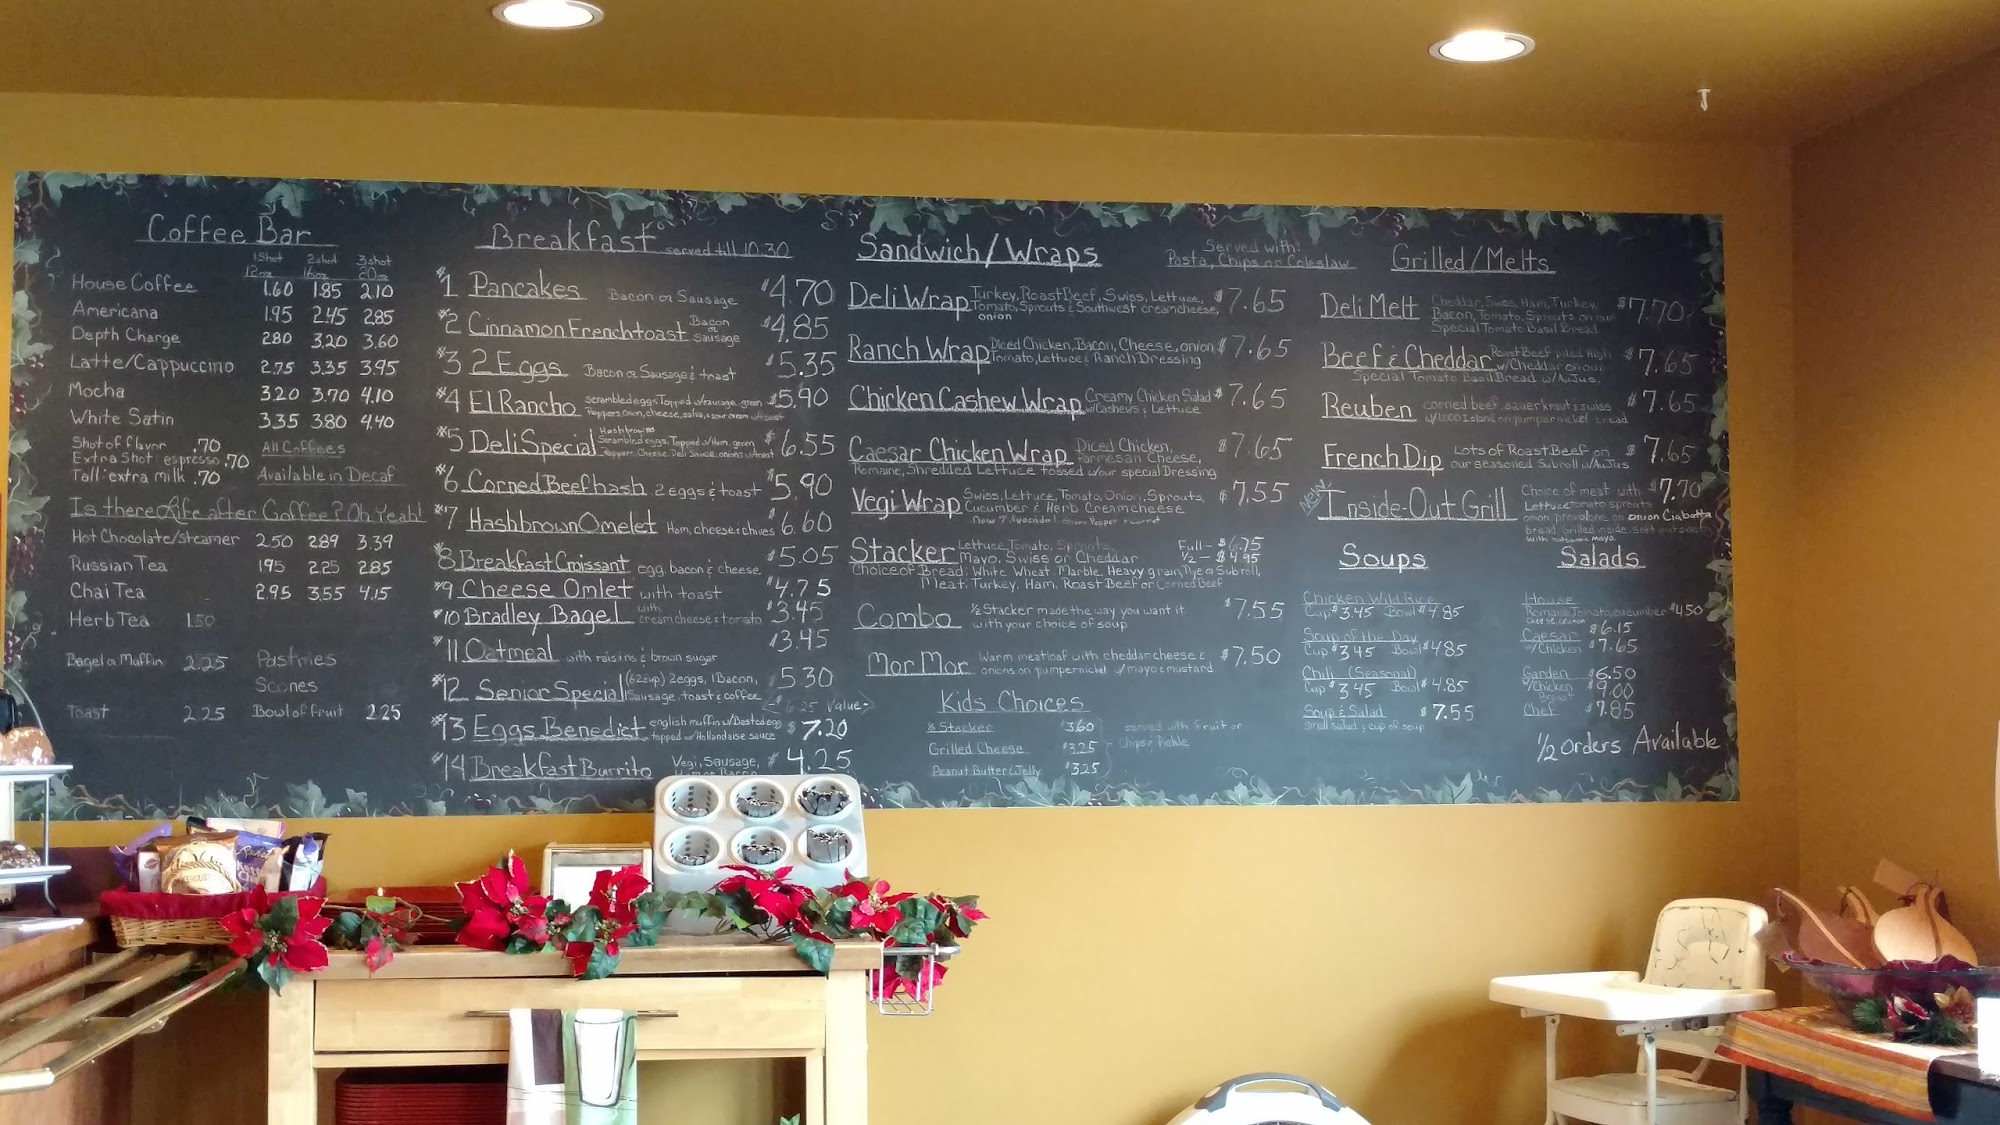 Coffee Bar
1 shot 2 shot 3 shot
12oz 16oz 20oz
House Coffee 1.60 1.85 2.10
Americana 1.95 2.45 2.85
Depth Charge 2.80 3.20 3.60
Latte/Cappuccino 2.75 3.35 3.95
Mocha 3.20 3.70 4.10
White Satin 3.35 3.80 4.40
Shot of flavor .70
Extra Shot espresso .70
Tall: extra milk .70
All Coffees
Available in Decaf
Is there Life after Coffee? Oh Yeah!
Hot Chocolate/Steamer 2.50 2.89 3.39
Russian Tea 1.95 2.25 2.85
Chai Tea 2.95 3.55 4.15
Herb Tea 1.50
Bagel or Muffin 2.25 Pastries
Scones
Toast 2.25 Bowl of fruit 2.25
Breakfast served till 10:30
#1 Pancakes Bacon or Sausage $4.70
#2 Cinnamon Frenchtoast Bacon or Sausage $4.85
#3 2 Eggs Bacon or Sausage & toast $5.35
#4 El Rancho scrambled eggs Topped w/sausage, green
Peppers, onion, cheese, salsa, sour cream $5.90
#5 Deli Special Hashbrowns
Scrambled eggs, Topped w/Ham, green
Peppers, Cheese, Deli Sauce, onions w/toast $6.55
#6 Corned Beef hash 2 eggs & toast $5.90
#7 Hashbrown Omelet Ham, cheese & chives $6.60
#8 Breakfast Croissant egg, bacon & cheese $5.05
#9 Cheese Omlet with toast $4.75
#10 Bradley Bagel with creamcheese & tomato $3.45
#11 Oatmeal with raisins & brown sugar $3.45
#12 Senior Special (62 & up) 2eggs, 1 Bacon,
1 Sausage, toast & coffee $5.30
6.25 Value
#13 Eggs Benedict english muffin w/Basted egg
topped w/Hollandaise sauce $7.20
#14 Breakfast Burrito Vegi, Sausage, $4.25
Sandwich/Wraps
Served with:
Pasta, Chips or Coleslaw
Deli Wrap Turkey, Roast Beef, Swiss, Lettuce,
Tomato, Sprouts & Southwest creamcheese,
onion $7.65
Ranch Wrap Diced Chicken, Bacon, Cheese, onion
Tomato, Lettuce & Ranch Dressing $7.65
Chicken Cashew Wrap Creamy Chicken Salad
w/Cashews & Lettuce $7.65
Caesar Chicken Wrap Diced Chicken,
Parmesan Cheese, $7.65
Romaine, Shredded Lettuce tossed w/our special Dressing
Vegi Wrap Swiss, Lettuce, Tomato, Onion, Sprouts,
Cucumber & Herb Creamcheese $7.55
Now & Avocado! Green Pepper & Carrot
Stacker Lettuce, Tomato, Sprouts, Full - $6.75
Mayo, Swiss or Cheddar 1/2 - $4.95
Choice of Bread: White, Wheat, Marble, Heavy grain, Rye or Sub roll,
Meat: Turkey, Ham, Roast Beef or Corned Beef
Combo 1/2 Stacker made the way you want it
with your choice of soup $7.55
Mor Mor Warm meatloaf with cheddar cheese &
onions on pumpernickel w/mayo & mustard $7.50
Kids Choices
1/2 Stacker $3.60
Grilled Cheese $3.25
Peanut Butter & Jelly $3.25
served with fruit or
Chips & Pickle
Grilled/Melts
Deli Melt Cheddar, Swiss, Ham, Turkey,
Bacon, Tomato, Sprouts on our
Special Tomato Basil Bread $7.70
Beef & Cheddar Roast Beef piled High
w/Cheddar on our
Special Tomato Basil Bread w/AuJus, $7.65
Reuben corned beef, sauerkraut & swiss
w/1000 Island on pumpernickel bread $7.65
French Dip Lots of Roast Beef on
our seasoned Sub roll w/AuJus $7.65
New Inside-Out Grill Choice of meat with $7.70
Lettuce Tomato sprouts
onion provolone on onion Ciabatta
bread Grilled inside, soft outside
with balsamic mayo.
Soups
Chicken Wild Rice
Cup $3.45 Bowl $4.85
Soup of the Day
Cup $3.45 Bowl $4.85
Chili (Seasonal)
Cup $3.45 Bowl $4.85
Soup & Salad $7.55
small salad & cup of soup
Salads
House
Romaine, Tomato, cucumber $4.50
Caesar $6.15
w/Chicken $7.65
Garden $6.50
w/Chicken Breast $9.00
Chef $7.85
1/2 Orders Available